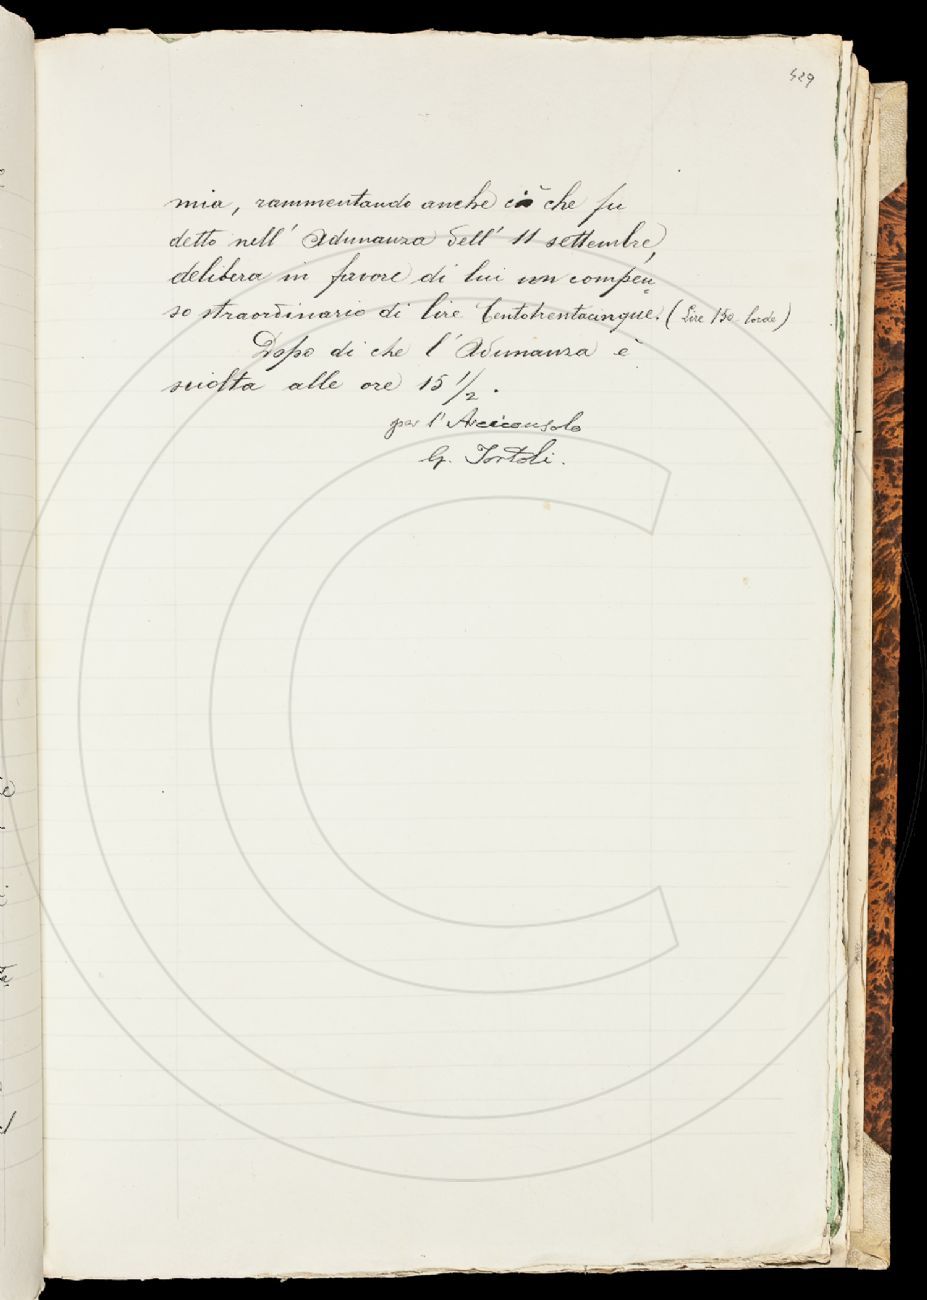 429
mia, rammentando anche ciò che fu
detto nell' Adunanza dell' 11 settembre,
delibera in favore di lui un compen=
so straordinario di lire Centotrentacinque. (Lire 150 lorde)
Dopo di che l'Adunanza è
sciolta alle ore 15 1/2.
per l'Arciconsolo
G. Tortoli.